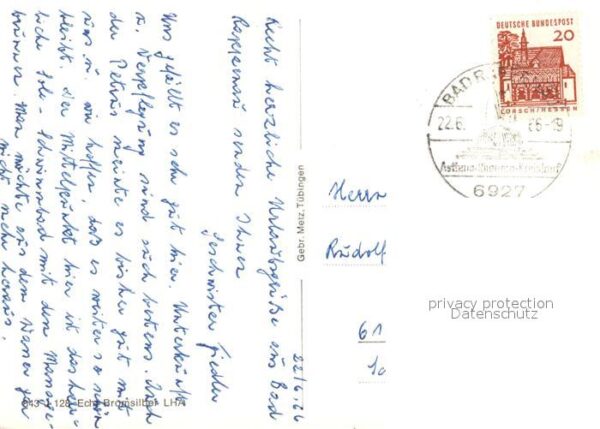 22.6.66
Recht herzliche Urlaubsgrüße aus Bad
Rappenau senden Ihnen
Geschwister Fiedler
Uns gefällt es sehr gut hier. Unterkunft
u. Verpflegung sind auch bestens. Auch
der Petrus meinte es bisher gut mit
uns u. wir hoffen, daß es weiter so schön
bleibt. Der Mittelpunkt hier ist das herr-
liche Sole-Schwimmbad mit dem Massage-
brunnen. Man möchte aus dem Wasser gar
nicht mehr heraus.
643 128 Echt Bromsilber LHA
Gebr. Metz, Tübingen
DEUTSCHE BUNDESPOST
20
LORSCH/HESSEN
BAD R
22.6. 66-19
6927
Herrn
Rudolf
61
privacy protection
Datenschutz